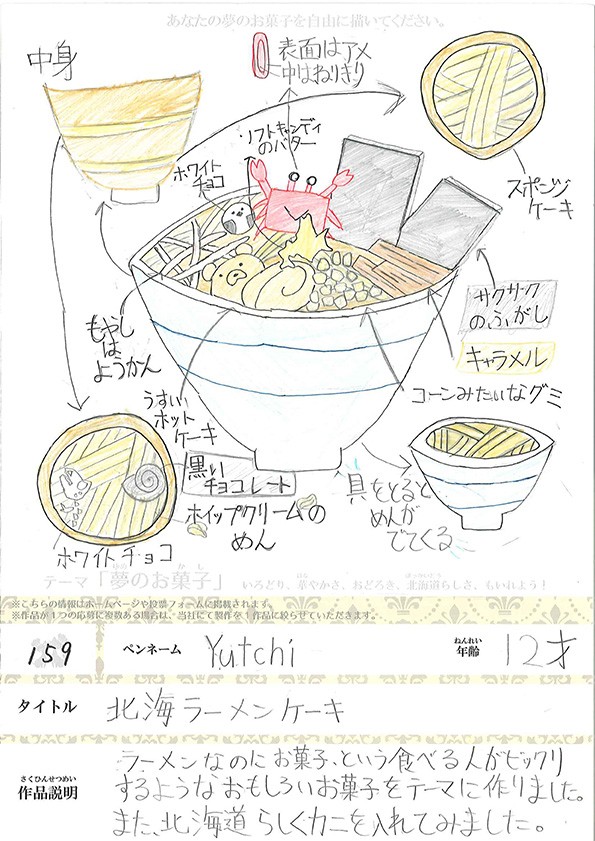 あなたの夢のお菓子を自由に描いてください。
中身
表面はアメ
中はねりきり
ソフトキャンディ
のバター
ホワイト
チョコ
スポンジ
ケーキ
サクサク
のふがし
キャラメル
コーンみたいなグミ
もやし
は
ようかん
うすい
ホット
ケーキ
黒い
チョコレート
ホイップクリームの
めん
ホワイトチョコ
具をとると
めんが
でてくる
テーマ「夢のお菓子」 いろどり、華やかさ、おどろき、北海道らしさ、もいれよう!
※こちらの情報はホームページや投票フォームに掲載されます。
※作品が1つの応募に複数ある場合は、当社にて製作を1作品に絞らせていただきます。
159 ペンネーム Yutchi 年齢 12才
タイトル 北海ラーメンケーキ
作品説明 ラーメンなのにお菓子、という食べる人がビックリ
するようなおもしろいお菓子をテーマに作りました。
また、北海道らしくカニを入れてみました。